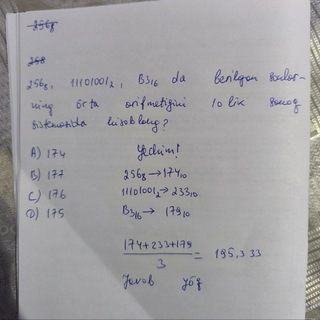 256₈
268
256₈, 11101001₂, B3₁₆ da berilgan sonlar-
ning o'rta arifmetigini 10 lik sanoq
sistemasida hisoblang?
A) 174
B) 177
C) 176
D) 175
Yechim!
256₈ → 174₁₀
11101001₂ → 233₁₀
B3₁₆ → 179₁₀
174+233+179
3
= 195,333
Javob yo'q